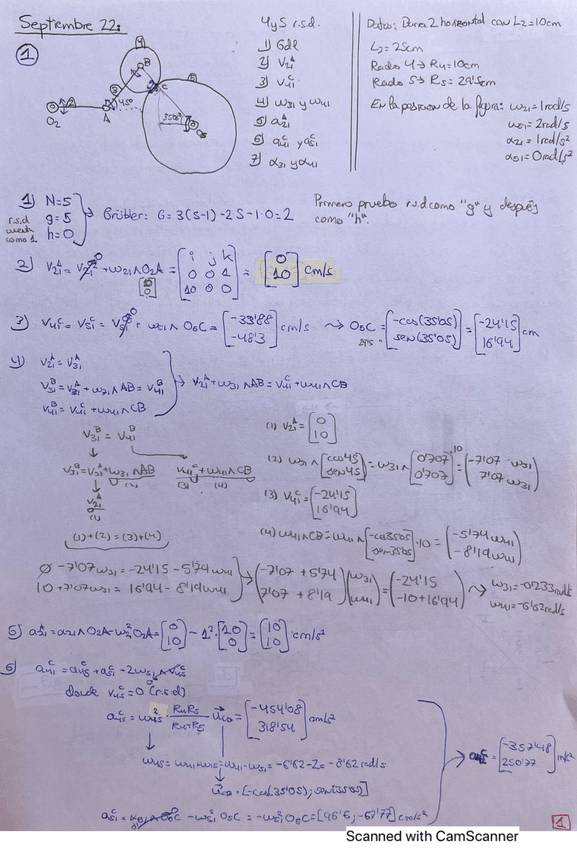 Septiembre 22:
1
4 y 5 r.s.d.
1) Gdl
2) V₂₁ᴬ
3) V₄₁ᶜ
4) ω₃₁ y ω₄₁
5) a₂₁ᴬ
6) a₄₁ᶜ y a₅₁ᶜ
7) α₃₁ y α₄₁
Datos: Barra 2 horizontal con L₂=10cm
L₃=25cm
Radio 4 → R₄=10cm
Radio 5 → R₅=29'5cm
En la posicion de la figura: ω₂₁=1rad/s
ω₅₁=2rad/s
α₂₁=1rad/s²
α₅₁=0rad/s²
O₂ 2 A 45º 3 B 4 C 5 35'05º
1) N=5
r.s.d g=5
como 1 h=0
Grübler: G=3(5-1)-2·5-1·0=2
Primero pruebo r.s.d como "g" y después
como "h".
2) V₂₁ᴬ = + ω₂₁∧O₂A = [i j k; 0 0 1; 10 0 0] = [0; 10] cm/s
3) V₄₁ᶜ = V₅₁ᶜ = + ω₅₁∧O₅C = [-33'88; -48'3] cm/s → O₅C = 29'5 [-cos(35'05); sen(35'05)] = [-24'15; 16'94] cm
4) V₂₁ᴬ=V₃₁ᴬ
V₃₁ᴮ=V₃₁ᴬ+ω₃₁∧AB=V₄₁ᴮ → V₂₁ᴬ+ω₃₁∧AB=V₄₁ᶜ+ω₄₁∧CB
V₄₁ᴮ=V₄₁ᶜ+ω₄₁∧CB
V₃₁ᴮ = V₄₁ᴮ
(1) V₂₁ᴬ = [0; 10]
V₃₁ᴮ=V₃₁ᴬ+ω₃₁∧AB V₄₁ᶜ+ω₄₁∧CB
(2) (3) (4)
(2) ω₃₁∧[cos45; sen45] = ω₃₁∧[0'707; 0'707]·10 = (-7'07 ω₃₁; 7'07 ω₃₁)
V₂₁ᴬ
(1)
(3) V₄₁ᶜ = [-24'15; 16'94]
(1)+(2)=(3)+(4)
(4) ω₄₁∧CB=ω₄₁∧[-cos35'05; sen35'05]·10 = (-5'74 ω₄₁; -8'19 ω₄₁)
0-7'07ω₃₁=-24'15-5'74ω₄₁
10+7'07ω₃₁=16'94-8'19ω₄₁
(-7'07 +5'74; 7'07 +8'19)(ω₃₁; ω₄₁) = (-24'15; -10+16'94) → ω₃₁=-0'233rad/s
ω₄₁=-6'62rad/s
5) a₂₁ᴬ=α₂₁∧O₂A-ω₂₁²O₂A=[0; 10]-1²·[10; 0]=[10; 10] cm/s²
6) a₄₁ᶜ=a₄₅ᶜ+a₅₁ᶜ+2ω₅₁∧V₄₅ᶜ
donde V₄₅ᶜ=0 (r.s.d)
a₄₅ᶜ=ω₄₅²·R₄·R₅/R₄+R₅ = [-454'08; 318'54] cm/s²
ω₄₅=ω₄₁+ω₁₅=ω₄₁-ω₅₁=-6'62-2=-8'62rad/s
=[-cos(35'05); sen(35'05)]
a₅₁ᶜ= -ω₅₁²O₅C=-ω₅₁²O₅C=[96'6; -67'77] cm/s²
a₄₁ᶜ = [-357'48; 250'77]
1
Scanned with CamScanner